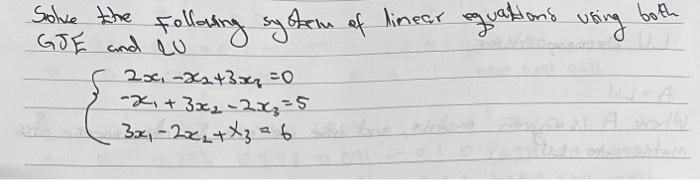 Solve the following system of linear equations using both
GJE and LU
2x₁ - x₂ + 3x₃ = 0
-x₁ + 3x₂ - 2x₃ = 5
3x₁ - 2x₂ + x₃ = 6